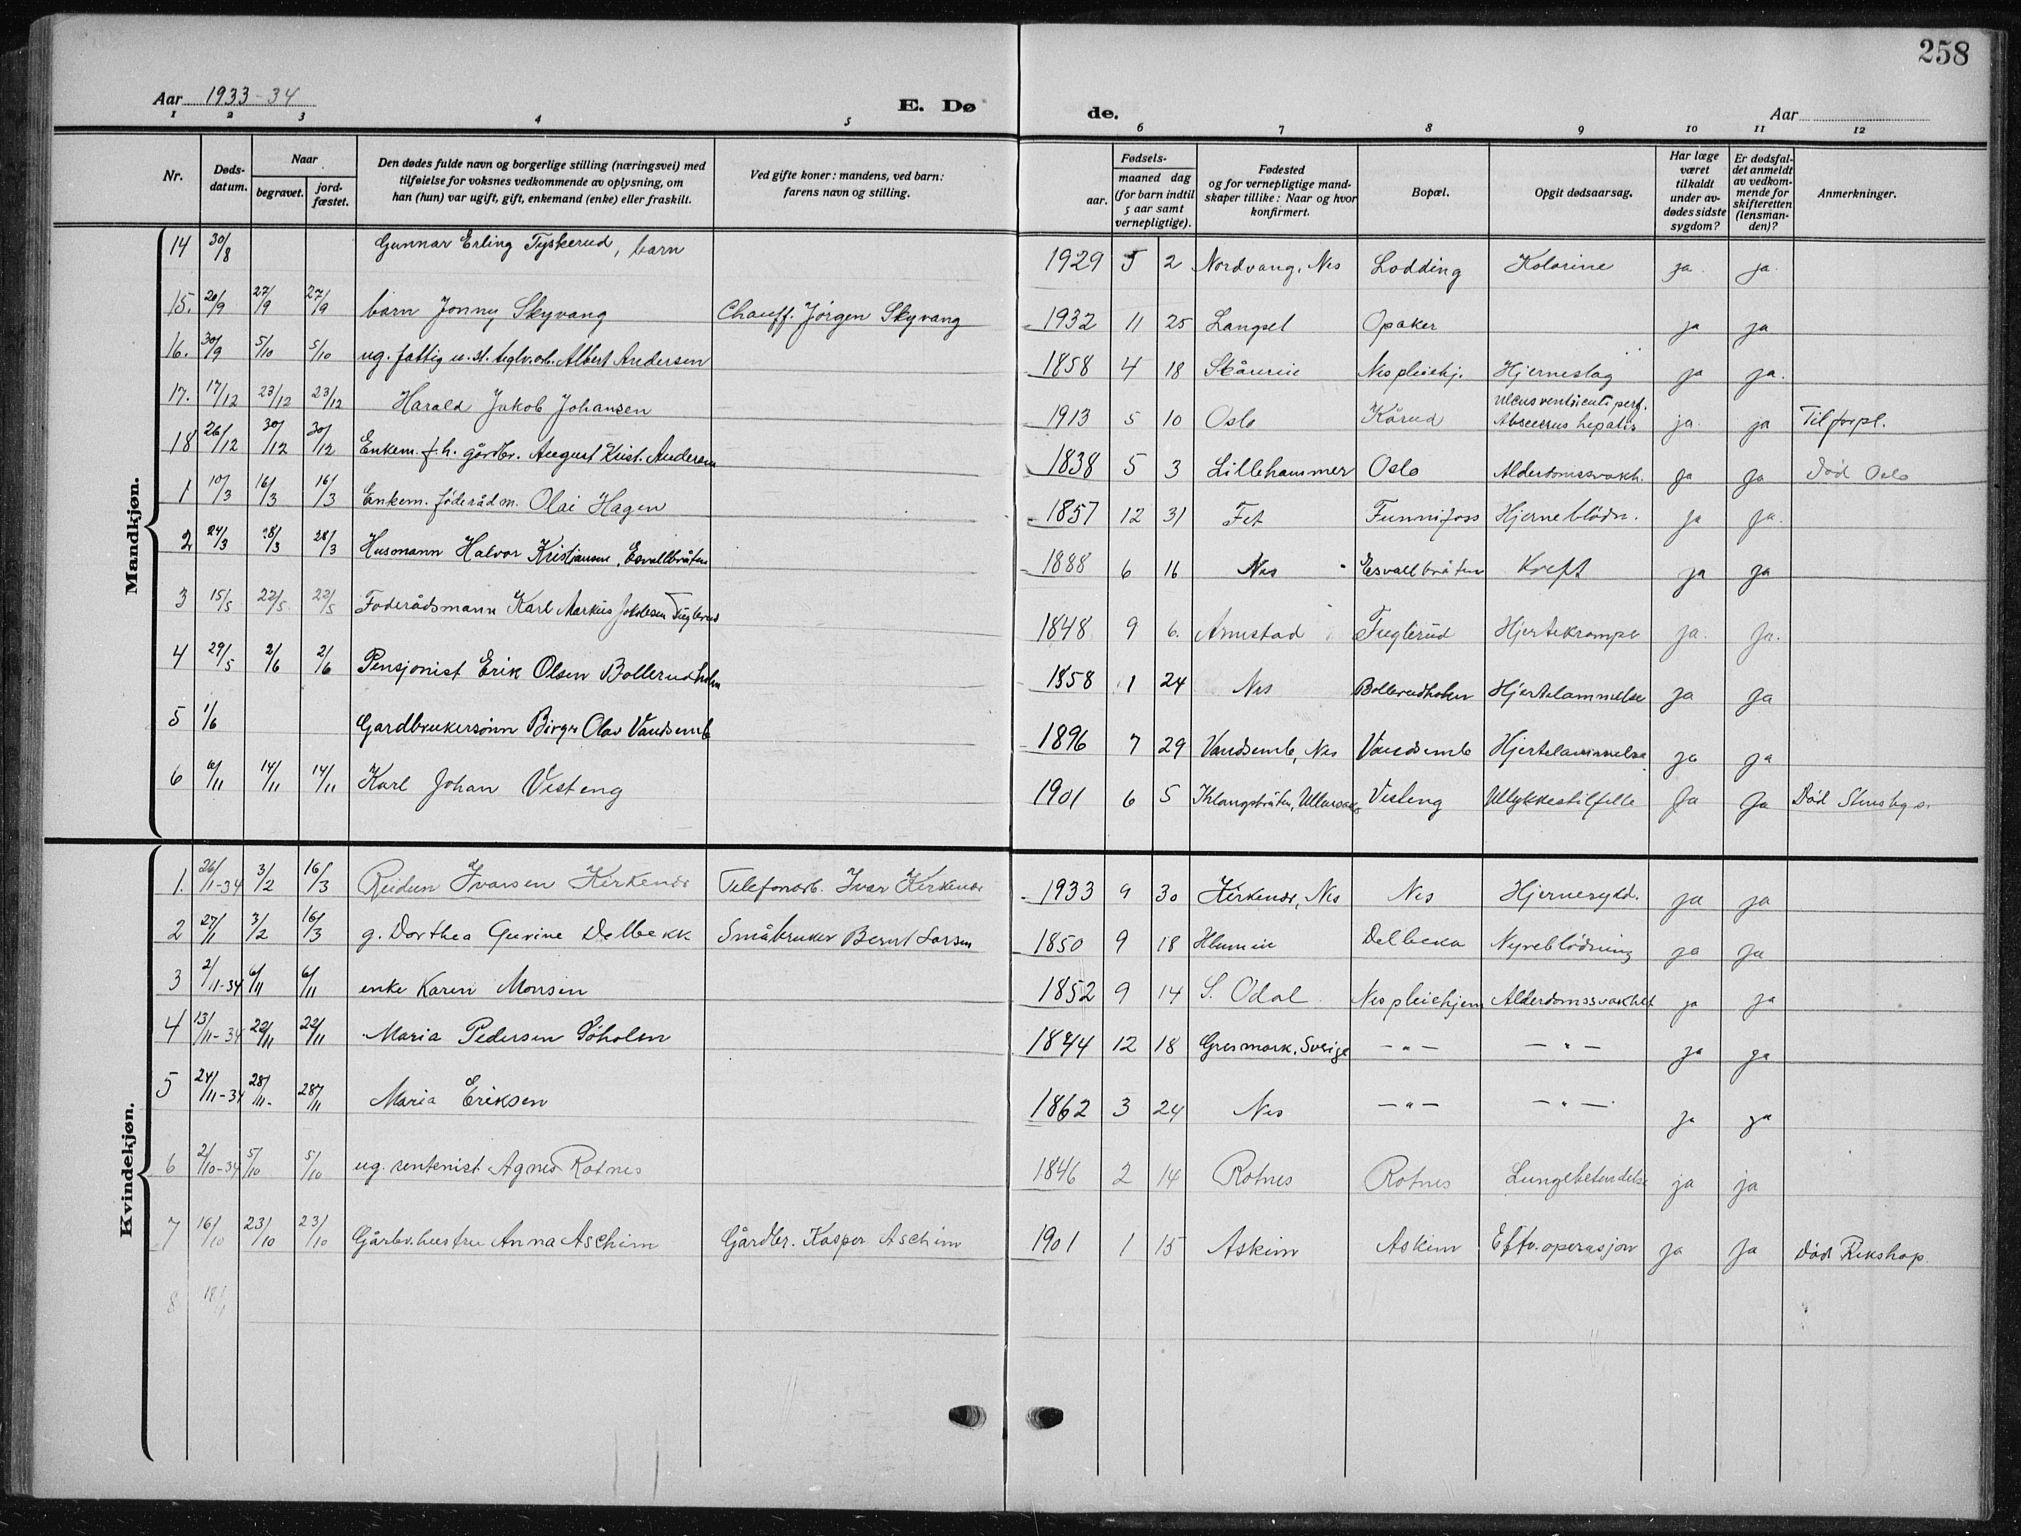 258
Aar 1933-34
E. Dø
de.
Aar
1 2 3 4 5 6 7 8 9 10 11 12
Nr.
Døds-
datum.
Naar
begravet.
jord-
fæstet.
Den dødes fulde navn og borgerlige stilling (næringsvei) med
tilføielse for voksnes vedkommende av oplysning, om
han (hun) var ugift, gift, enkemand (enke) eller fraskilt.
Ved gifte koner: mandens, ved barn:
farens navn og stilling.
Fødsels-
aar.
maaned dag
(for barn indtil
5 aar samt
vernepligtige).
Fødested
og for vernepligtige mand-
skaper tillike: Naar og hvor
konfirmert.
Bopæl.
Opgit dødsaarsag.
Har læge
været
tilkaldt
under av-
dødes sidste
sygdom?
Er dødsfal-
det anmeldt
av vedkom-
mende for
skifteretten
(lensman-
den)?
Anmerkninger.
Mandkjøn.
14 30/8 Gunnar Erling Tyskerud, barn 1929 5 2 Nordvang, Nes Lodding ja. ja.
15. 20/9 27/9 27/9 barn Jonny Skyvang Chauff. Jørgen Skyvang 1932 11 25 Langset Opaker ja ja
16. 30/9 5/10 5/10 ug. fattig u. st. teglv.arb. Albert Andersen 1858 4 18 Nes pleiehj. Hjerneslag ja ja.
17. 17/12 23/12 23/12 Harald Jakob Johansen 1913 5 10 Oslo Kårud Ulcus ventriculi perf.
Abscessus hepatis ja. ja Til forpl.
18 26/12 30/12 30/12 Enkem. f.h. gårdbr. August Krist. Andersen 1838 5 3 Lillehammer Oslo Alderdomssvakh. ja ja Død Oslo
1 10/3 16/3 16/3 Enkem. føderådm. Olai Hagen 1857 12 31 Fet Funnifoss Hjerneblødn. ja ja.
2 24/3 28/3 28/3 Husmann Halvor Kristiansen, Esvallbråten 1888 6 16 Nes Esvallbråten Kreft ja ja
3 15/5 22/5 22/5 Føderådsmann Karl Markus Fuglerud 1848 9 6. Arnestad Fuglerud Hjertekrampe ja. ja.
4 29/5 2/6 2/6 Pensjonist Erik Olsen Bollerudholm 1858 1 24 Nes Bollerudholm Hjertelammelse ja ja
5 1/6 Gardbrukersønn Birger Olav Vandsemb 1896 7 29 Vandsemb, Nes Vandsemb Hjertelammelse ja ja
6 6/11 14/11 14/11 Karl Johan Visteng 1901 6 5 Visteng Ulykkestilfelle ja ja Død Stensby s.
Kvindekjøn.
1. 26/1-34 3/2 16/3 Reidun Ivarsen Kirkenær Telefonarb. Ivar Kirkenær 1933 9 30 Kirkenær, Nes Nes Hjernesykd. ja ja
2 27/1 3/2 16/3 g. Dorthea Gurine Delbekk Småbruker Bernt Larsen 1850 9 18 Delbekk Nyreblødning ja ja
3 2/11-34 6/11 6/11 enke Karen Monsen 1852 9 14 S. Odal. Nes pleiehjem Alderdomssvakhet ja ja
4 13/11-34 22/11 22/11 Maria Pedersen Søholm 1844 12 18 Gresmark, Sverige —"— —"— ja ja
5 24/11-34 28/11. 28/11 Maria Eriksen 1862 3 24 Nes —"— —"— ja ja
6 2/10-34 5/10 5/10 ug. rentenist Agnes Rotnes 1846 2 14 Rotnes Rotnes Lungebetendelse ja ja
7 16/10 23/10 23/10 Gårbr.hustru Anna Aschim Gårdbr. Kasper Aschim 1901 1 15 Askim Askim Eftr. operasjon ja ja Død Rikshop.
8